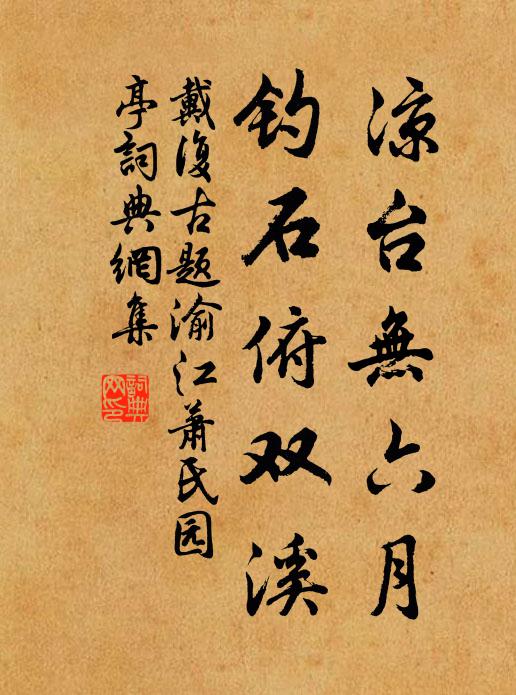 涼台無六月
钓石俯双溪
戴復古题渝江萧民园
亭詞典網集
詞典
网印